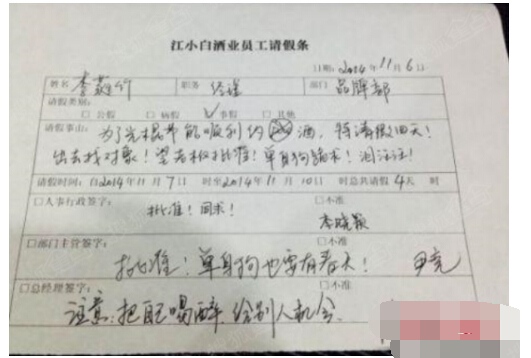 江小白酒业员工请假条
日期: 2014年11月6日
姓名 李 职务 经理 部门 品牌部
请假类别:
□ 公假 □ 病假 ✓事假 □ 其他
请假事由: 为了光棍节能顺利约 酒, 特请假四天!
出去找对象! 望老板批准! 单身狗跪求! 泪汪汪!
请假时间: 自2014年11月7日 时至2014年11月10日 时总共请假4天 时
□人事行政签字: □不准
批准! 同求! 李晓颖
□部门主管签字: □不准
批准! 单身狗也要有春天! 尹亮
□总经理签字: □不准
注意: 把自己喝醉, 给别人机会.